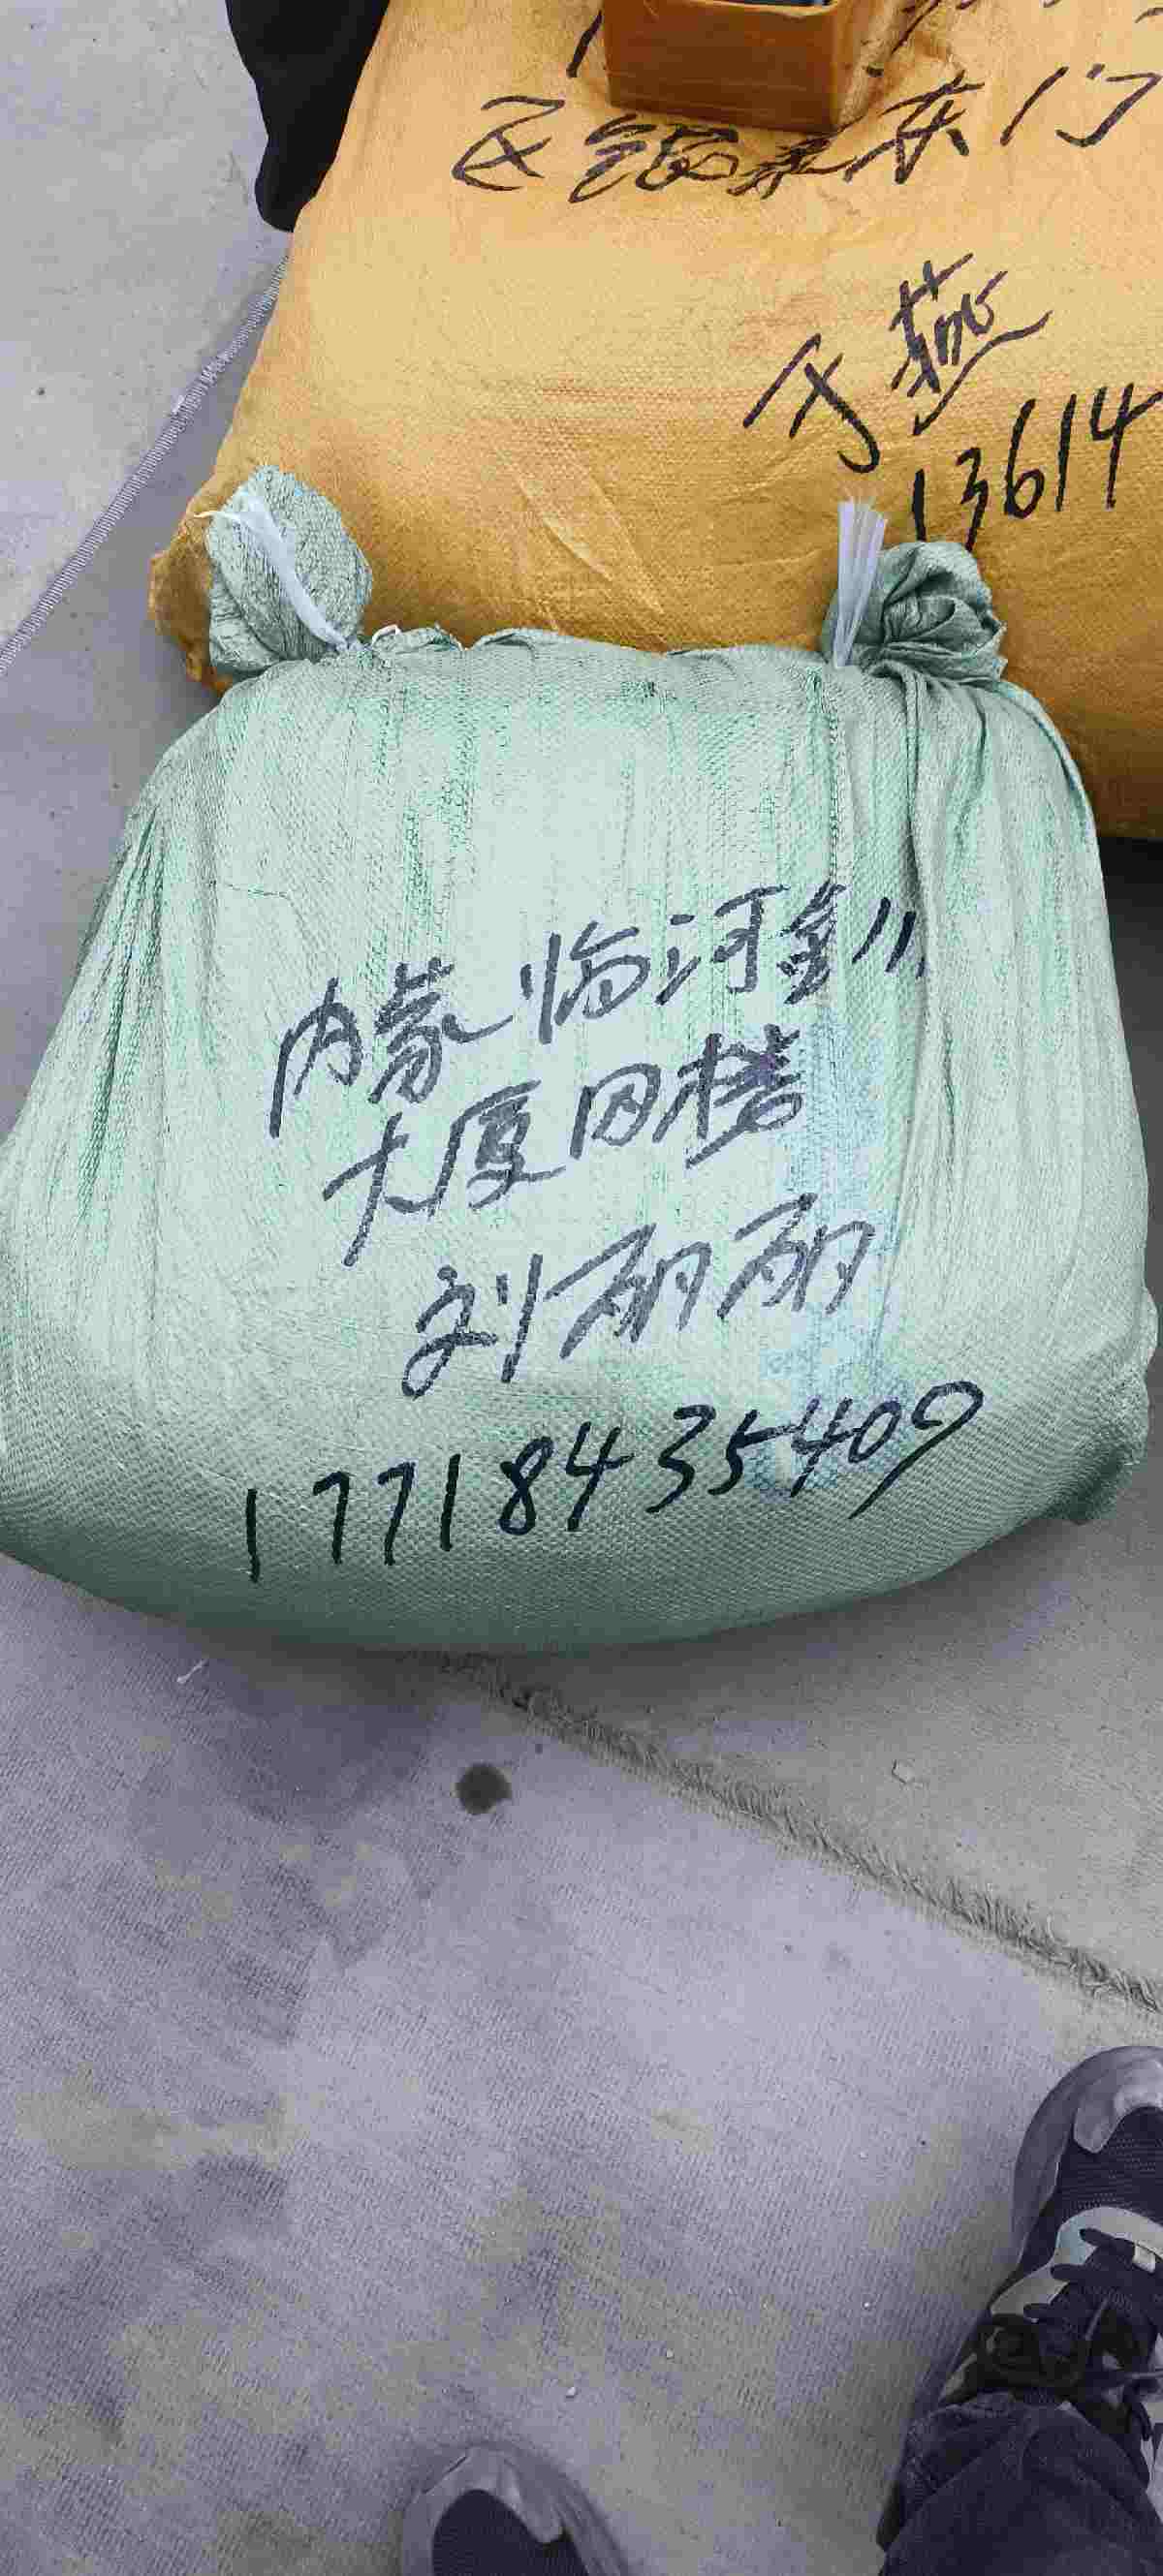 区银泉东门
燕
13614
内蒙临河金川
大厦四楼
刘丽丽
17718435409